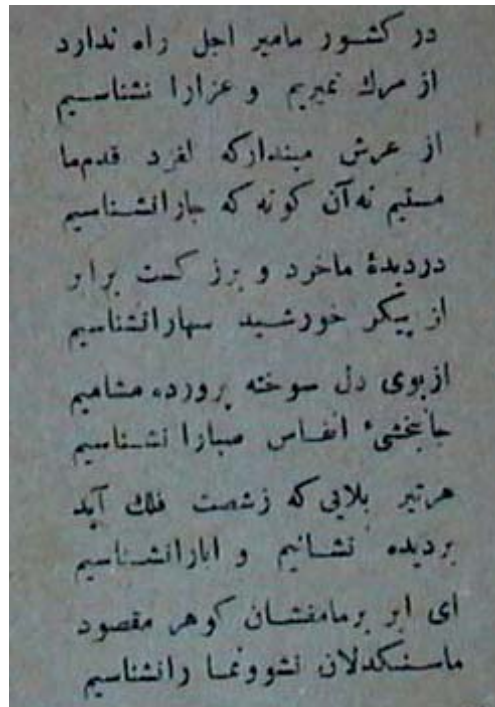 در کشور ما میر اجل راه ندارد
از مرك نمیریم و عزارا نشناسیم
از عرش مپندارکه لغزد قدم‌ما
مستیم نه‌آن کونه که جارانشناسیم
دردیدهٔ ماخرد و بزرکست برابر
از پیکر خورشید سهارانشناسیم
ازبوی دل سوخته پرورده مشامیم
جانبخشیٔ انفاس صبارا نشناسیم
هرتیر بلایی که زشصت فلك آید
بردیده نشانیم و ابارانشناسیم
ای ابر برمامفشان کوهر مقصود
ماسنکدلان نشوونما رانشناسیم